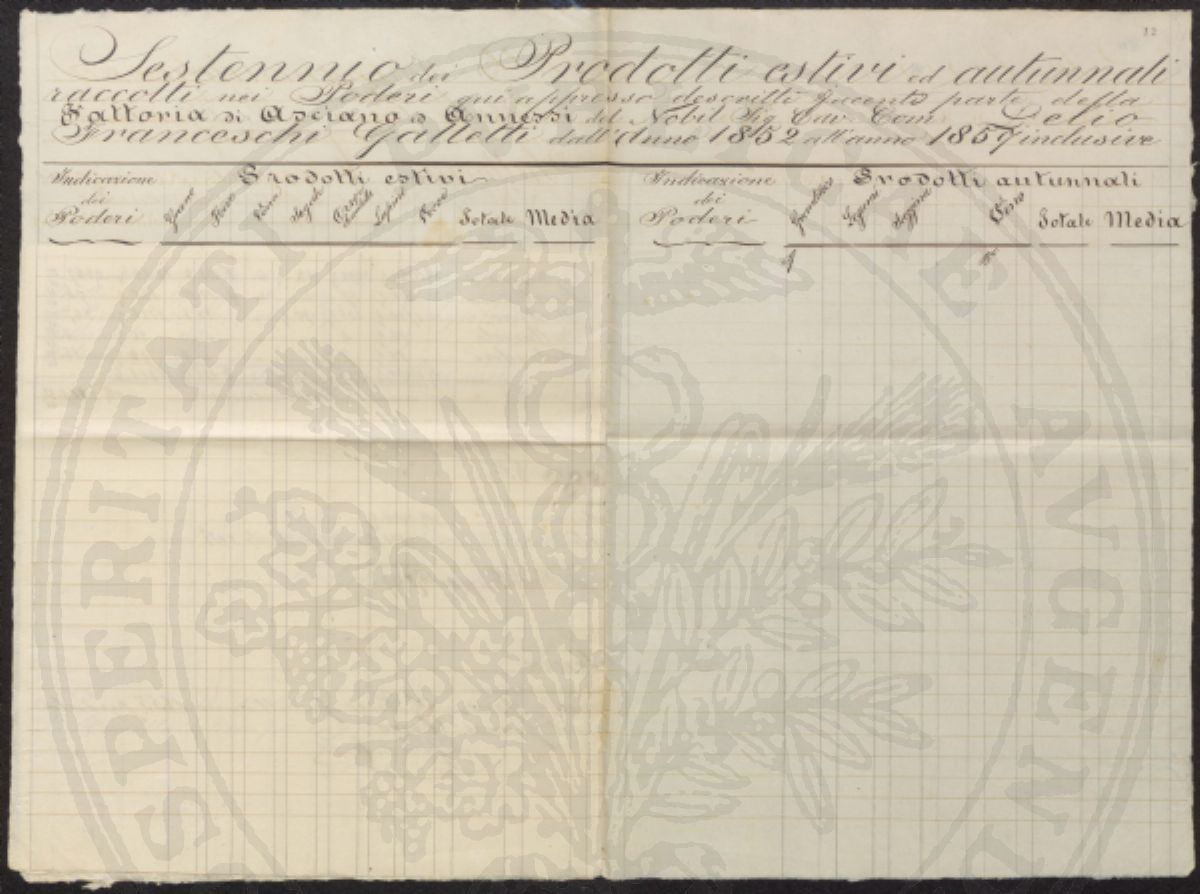 12
Sestennio dei Prodotti estivi ed autunnali
raccolti nei Poderi qui appresso descritti facenti parte della
Fattoria di Asciano e Annessi del Nobil Sig Cav. Com Lelio
Franceschi Galletti dall'Anno 1852 all'anno 1857 inclusive
Indicazione dei Poderi
Prodotti estivi
Grano
Vena
Segale
Totale
Media
Indicazione dei Poderi
Prodotti autunnali
Granturco
Fagioli
Saggina
Vino
Totale
Media
SPERITATI
AVGEN